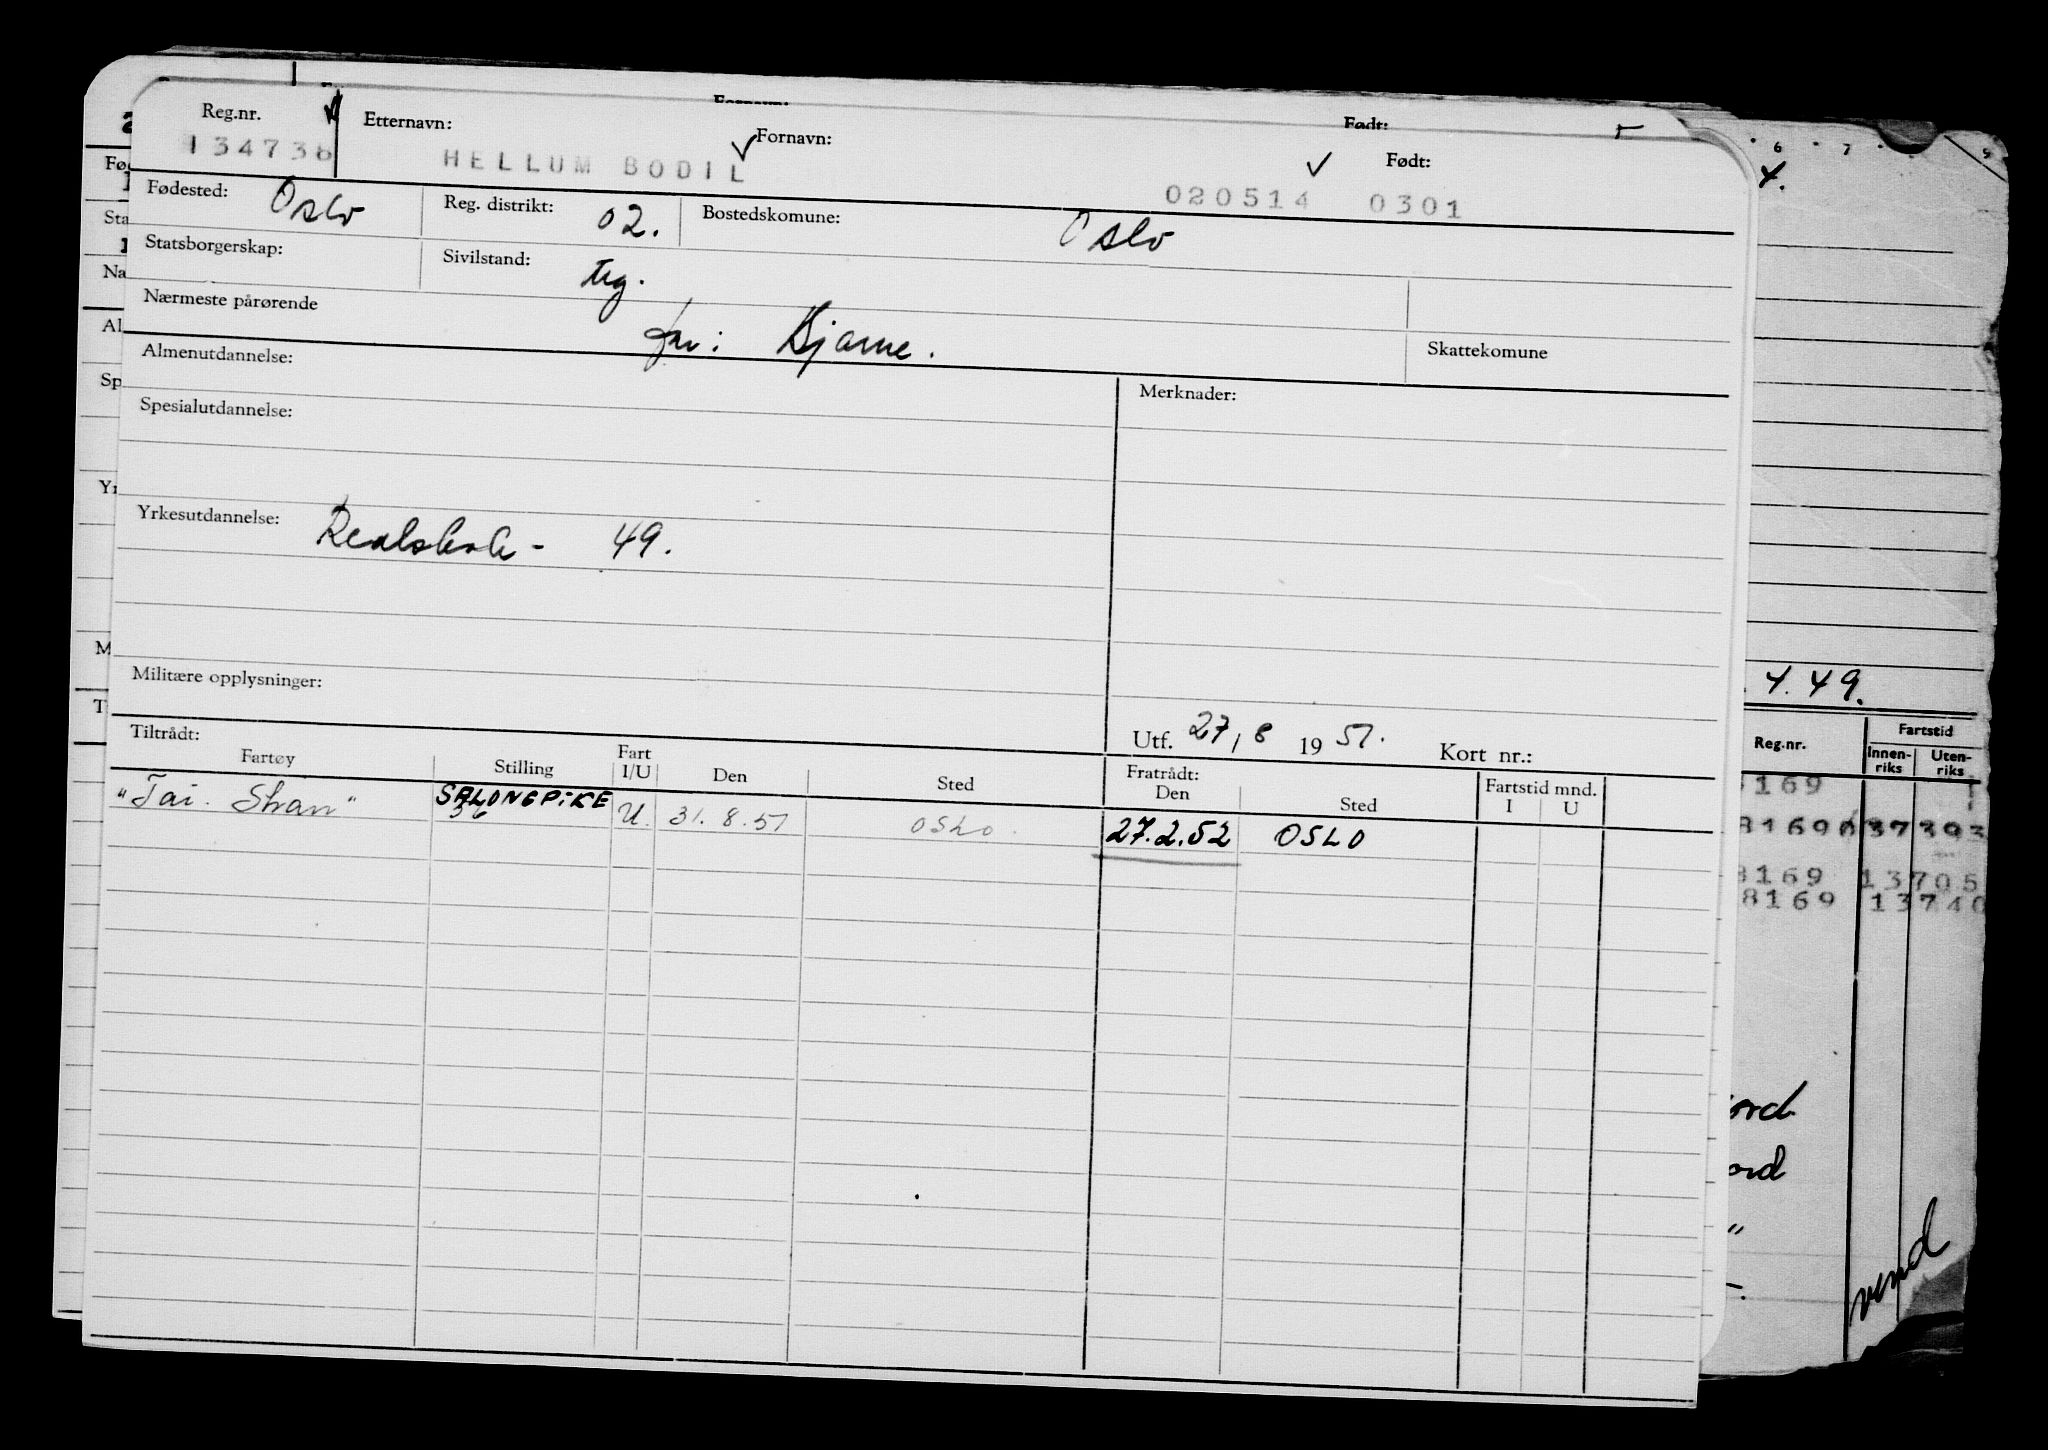 Reg.nr. Etternavn: Fornavn: Født:
134736 HELLUM BODIL 020514 0301
Fødested: Oslo Reg. distrikt: 02. Bostedskomune: Oslo
Statsborgerskap: Sivilstand: ug.
Nærmeste pårørende far: Bjarne. Skattekomune
Almenutdannelse: Merknader:
Spesialutdannelse:
Yrkesutdannelse: Realskole - 49.
Militære opplysninger:
Utf. 27/8 1951. Kort nr.:
Tiltrådt: Fratrådt:
Fartøy Stilling Fart I/U Den Sted Den Sted Fartstid mnd. I U
"Tai. Shan" SALONGPiKE 36 U. 31.8.51 OSLO. 27.2.52 OSLO
Født:
6 7
4.
4.49.
Reg.nr. Fartstid
Innen-riks Uten-riks
169
8169
8169 13705
8169 13740
vend